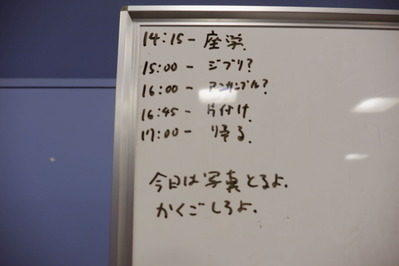 14:15- 座学.
15:00- ジブリ?
16:00- アンサンブル?
16:45- 片付け.
17:00- 帰る.
今日は写真とるよ.
かくごしろよ.